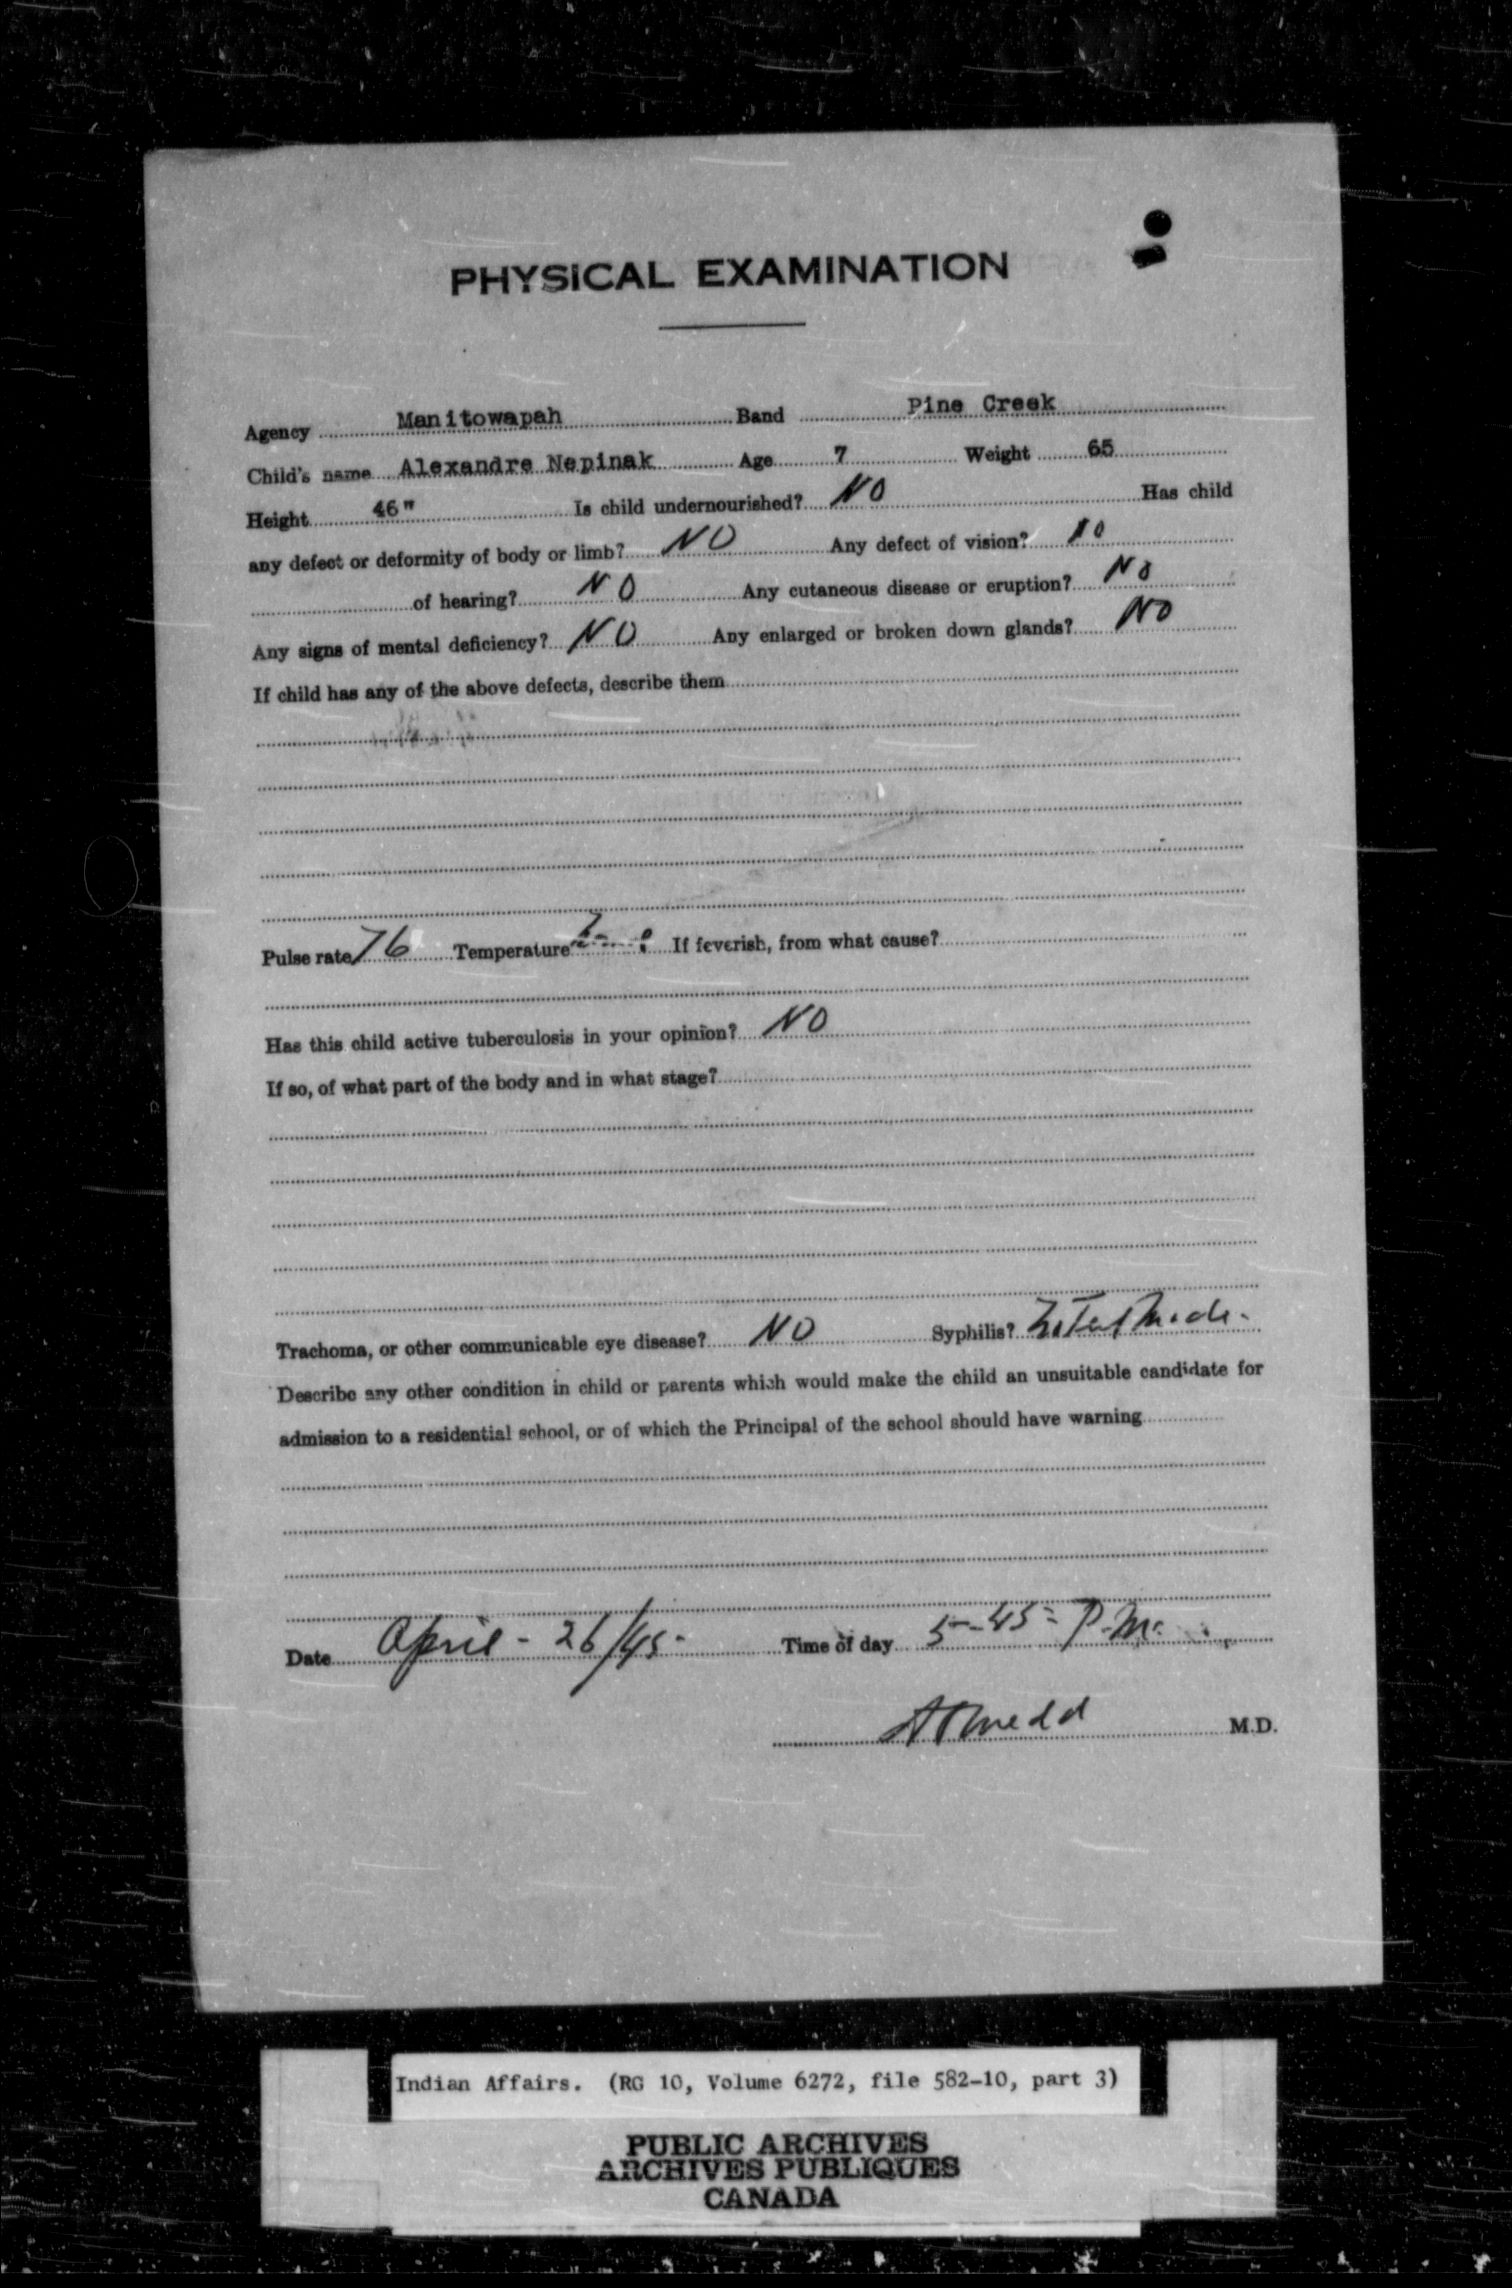 PHYSICAL EXAMINATION
Agency Manitowapah Band Pine Creek
Child's name Alexandre Nepinak Age 7 Weight 65
Height 46" Is child undernourished? NO Has child
any defect or deformity of body or limb? NO Any defect of vision? NO
of hearing? NO Any cutaneous disease or eruption? NO
Any signs of mental deficiency? NO Any enlarged or broken down glands? NO
If child has any of the above defects, describe them
Pulse rate 76 Temperature If feverish, from what cause?
Has this child active tuberculosis in your opinion? NO
If so, of what part of the body and in what stage?
Trachoma, or other communicable eye disease? NO Syphilis? No Test Made -
Describe any other condition in child or parents which would make the child an unsuitable candidate for
admission to a residential school, or of which the Principal of the school should have warning
Date April - 26/45 - Time of day 5-45- P.M.
M.D.
Indian Affairs. (RG 10, Volume 6272, file 582-10, part 3)
PUBLIC ARCHIVES
ARCHIVES PUBLIQUES
CANADA